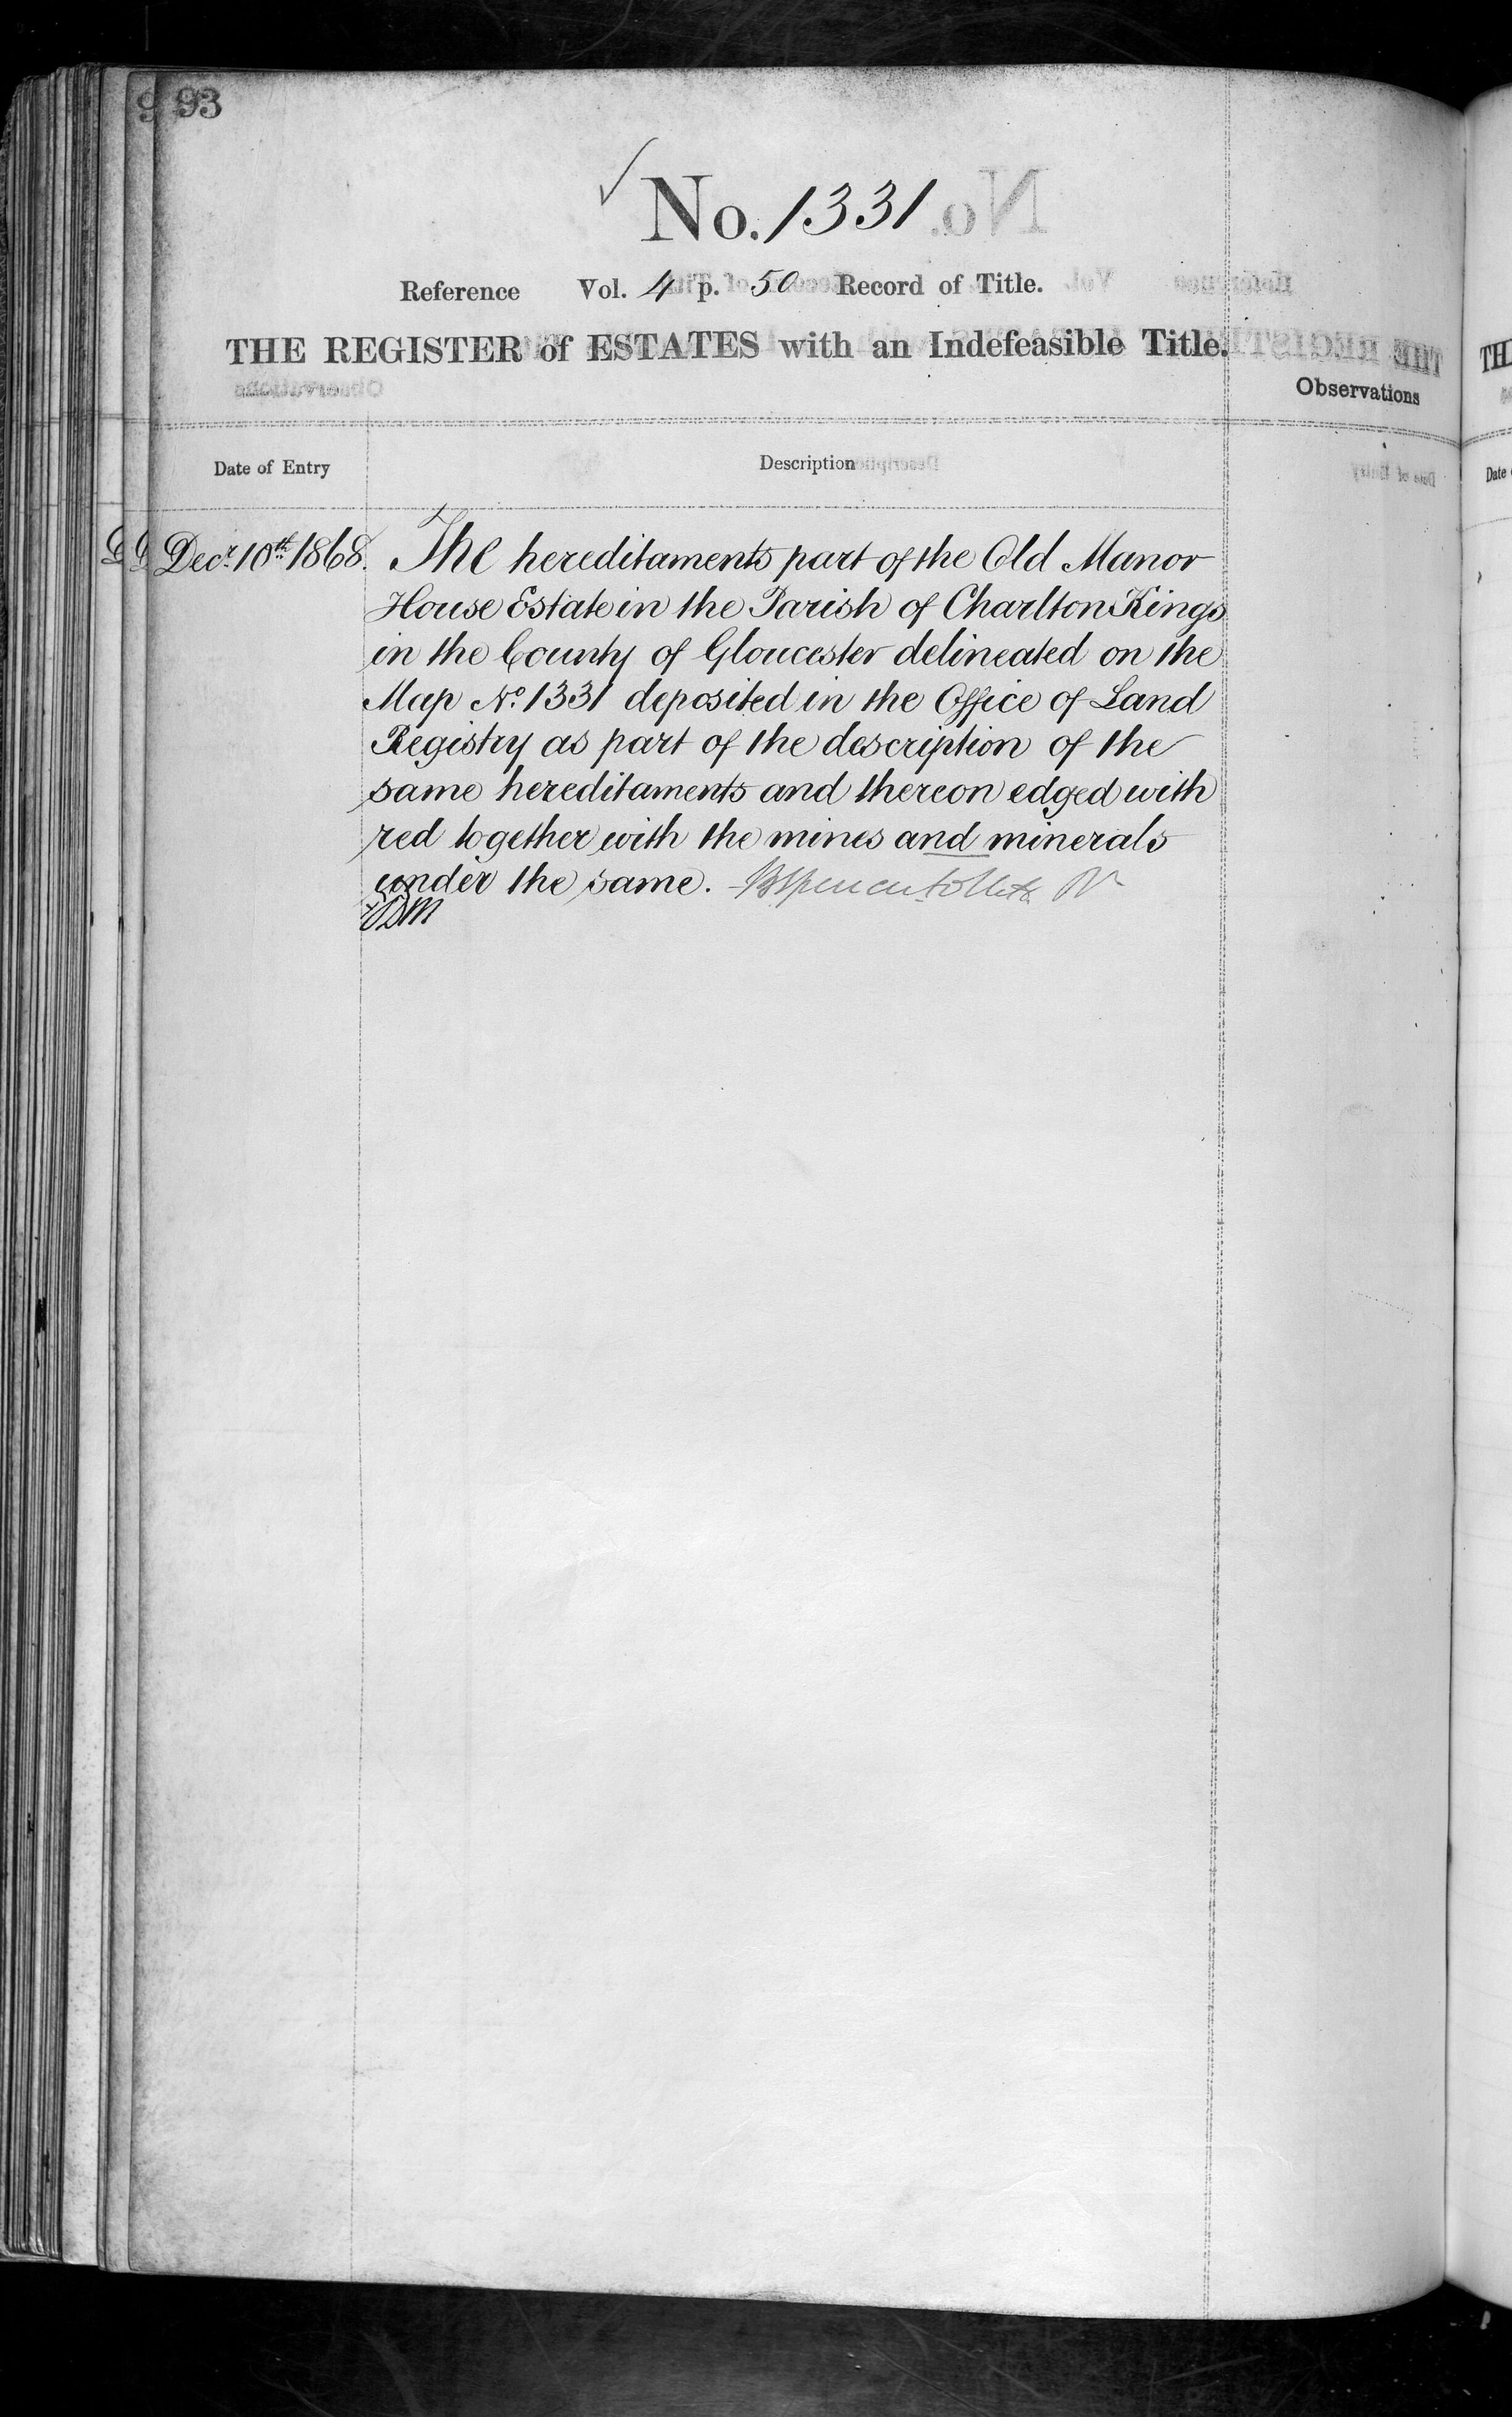 93
No. 1331
Reference Vol. 4 p. 50 Record of Title.
THE REGISTER of ESTATES with an Indefeasible Title.
Observations
Date of Entry
Description
Decr. 10th 1868. The hereditaments part of the Old Manor
House Estate in the Parish of Charlton Kings
in the County of Gloucester delineated on the
Map No. 1331 deposited in the Office of Land
Registry as part of the description of the
same hereditaments and thereon edged with
red together with the mines and minerals
under the same.